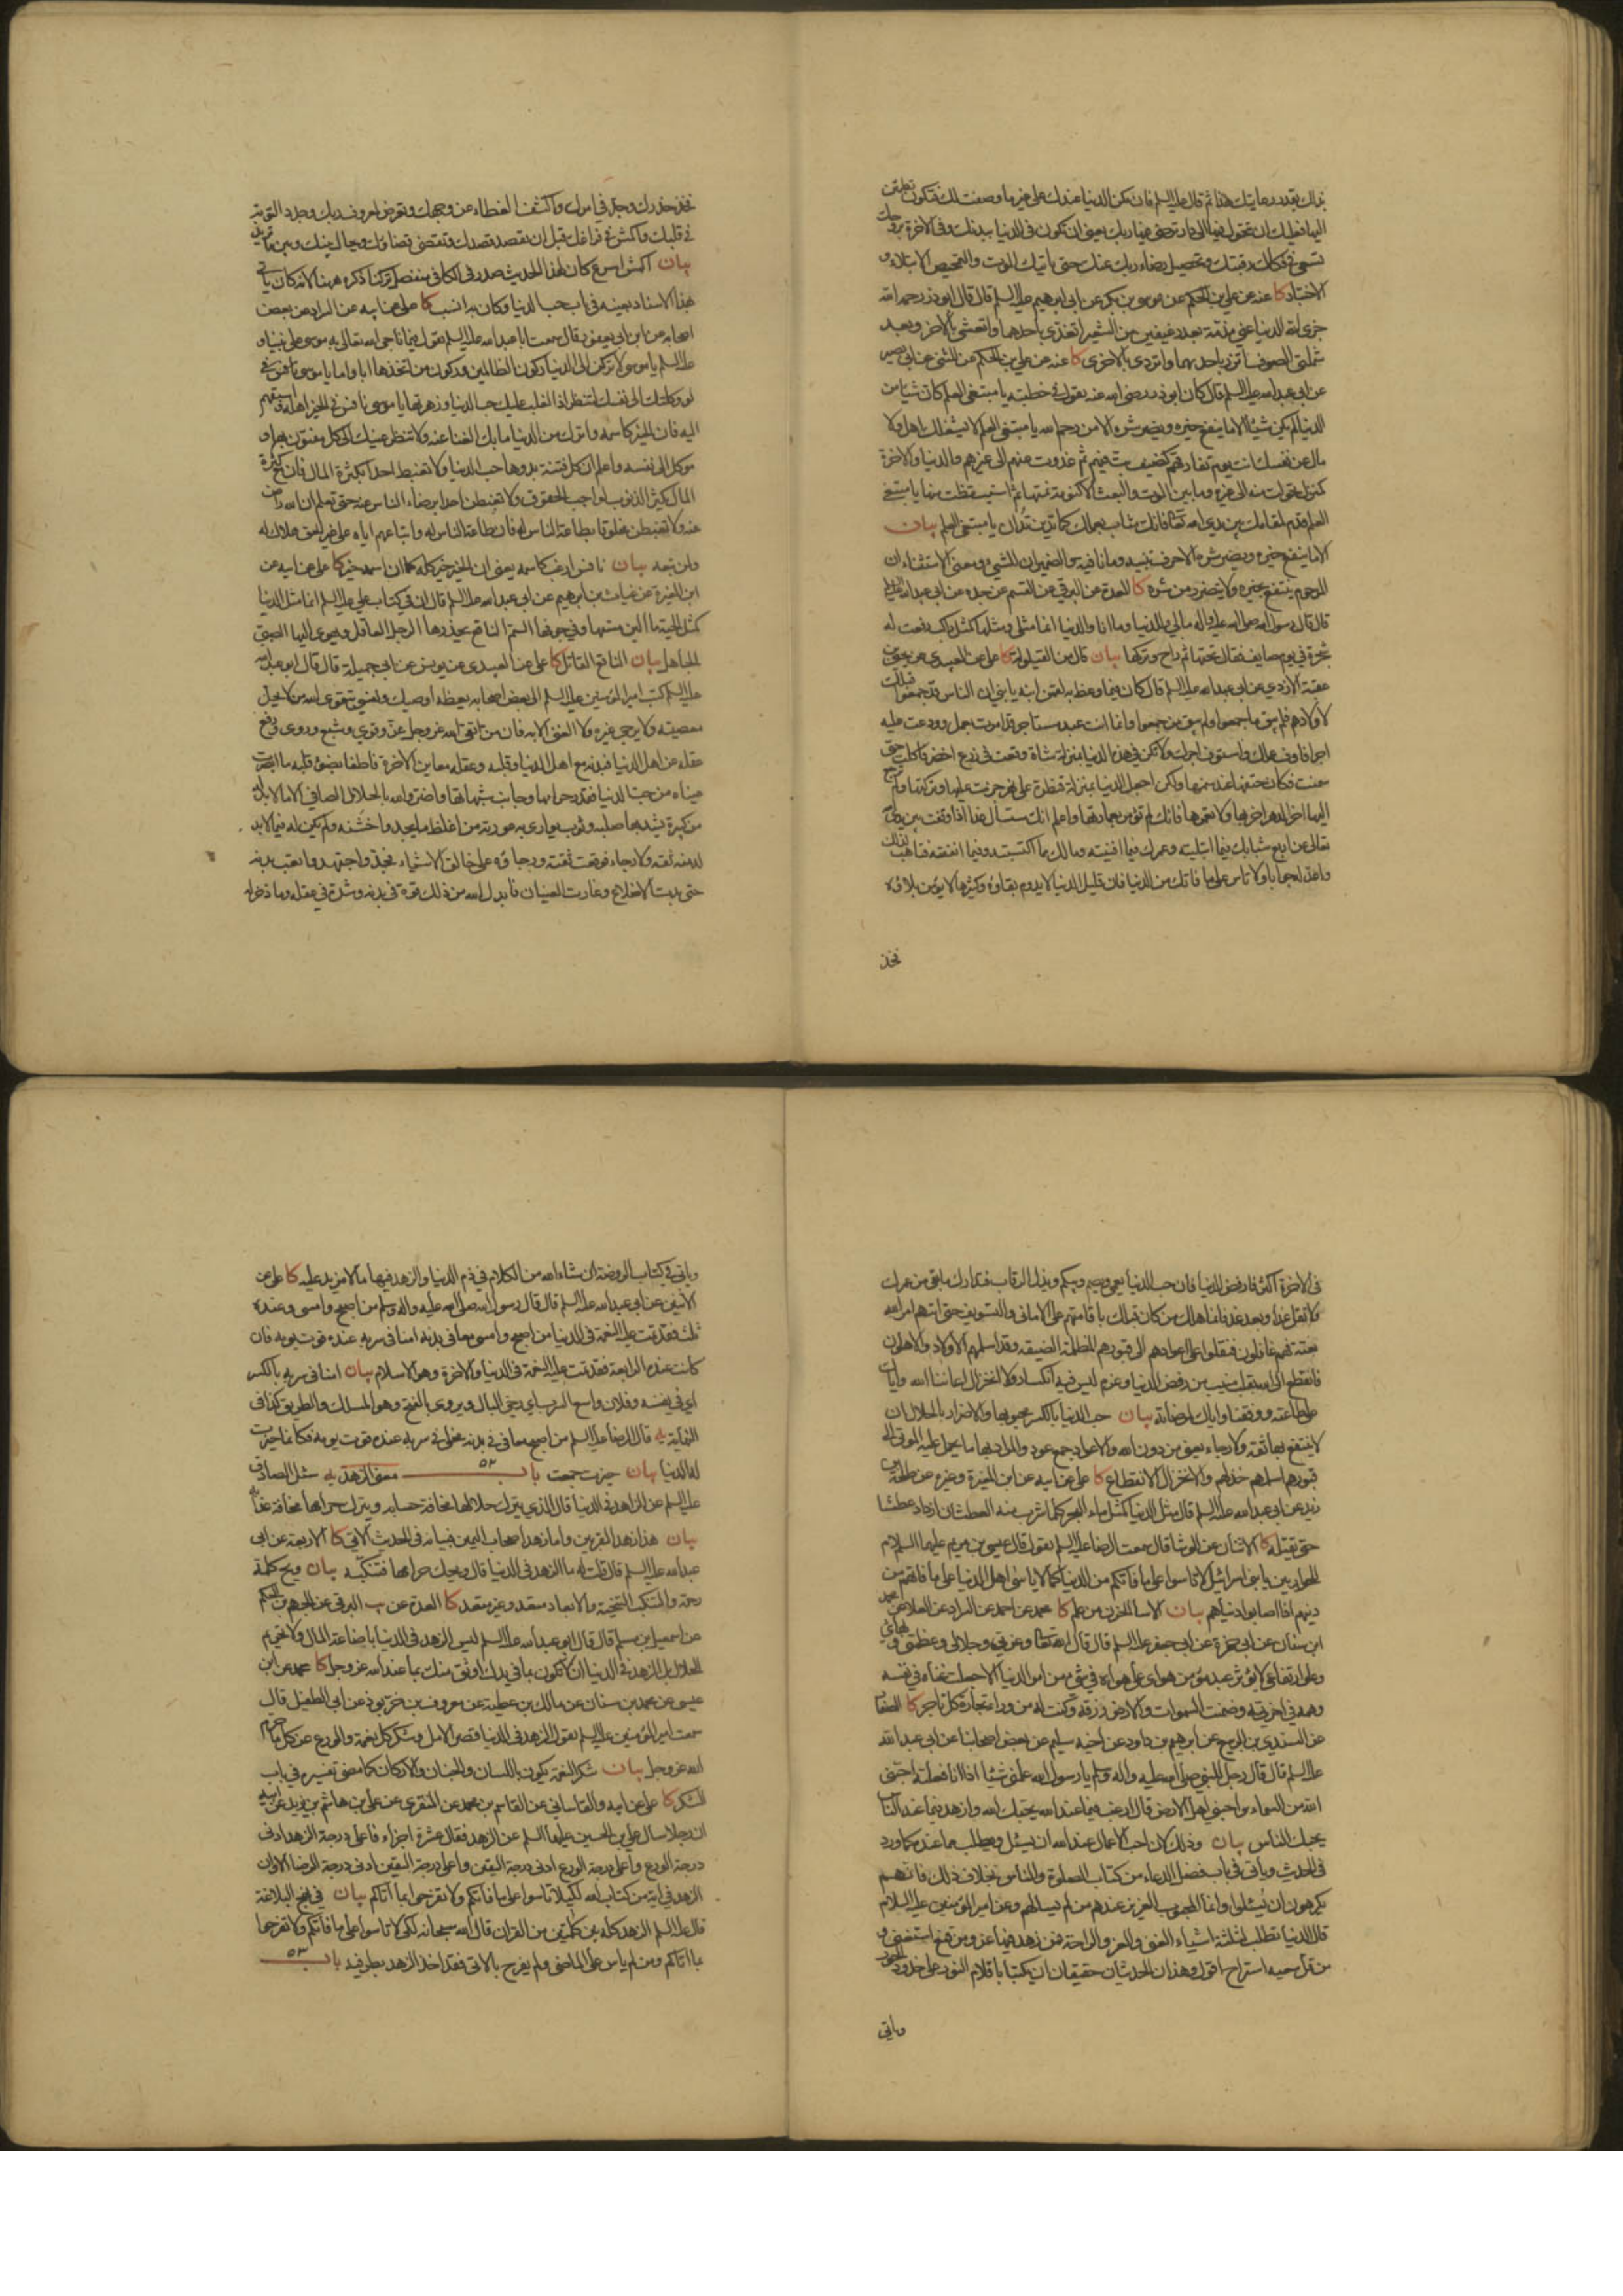 بذلك بقدر رعايتك هذا ثم قال عليه السلم فان تكن الدنيا عندك على غير ما وصفت لك فتكون تطمئن
اليها فعليك ان تتحول فيها الى دار ترضى فيها ربك يعني ان تكون في الدنيا ببدنك وفي الاخرة بروحك
تسعى في فكاك رقبتك وتحصيل رضاء ربك عنك حتى ياتيك الموت والتمحيص الابتلاء و
الاختبار كا عنه عن علي بن الحكم عن موسى بن بكر عن ابي ابرهيم عليه السلم قال قال ابو ذر رحمه الله
جزى الله الدنيا عني مذمة بعد رغيفين من الشعير اتغذى باحدهما واتعشى بالاخر وبعد
شملتي الصوف اتزر باحديهما واتردى بالاخرى كا عنه عن علي بن الحكم عن المثنى عن ابي بصير
عن ابي عبد الله عليه السلم قال كان ابو ذر رضي الله عنه يقول في خطبته يا مبتغي العلم كان شيئا من
الدنيا لم يكن شيئا الا ما ينفع خيره ويضر شره الا من رحم الله يا مبتغي العلم لا يشغلك اهل ولا
مال عن نفسك انت يوم تفارقهم كضيف بت فيهم ثم غدوت عنهم الى غيرهم والدنيا والاخرة
كمنزل تحولت منه الى غيره وما بين الموت والبعث الا كنومة نمتها ثم استيقظت منها يا مبتغي
العلم قدم لمقامك بين يدي الله تعالى فانك مثاب بعملك كما تدين تدان يا مبتغي العلم بيان
الا ما ينفع خيره ويضر شره الا حرف تنبيه وما نافية والضميران للشيء ومعنى الاستثناء ان
المرحوم ينتفع بخيره ولا يتضرر من شره كا العدة عن البرقي عن القسم عن جده عن ابي عبد الله عليه السلم
قال قال رسول الله صلى الله عليه واله مالي وللدنيا وما انا والدنيا انما مثلي ومثلها كمثل راكب رفعت له
شجرة في يوم صايف فقال تحتها ثم راح وتركها بيان قال من القيلولة كا علي عن العبيدي عن يحيى بن
عقبة الازدي عن ابي عبد الله عليه السلم قال كان فيما وعظ به لقمن ابنه يا بني ان الناس قد جمعوا قبلك
لاولادهم فلم يبق ما جمعوا ولم يبق من جمعوا له وانما انت عبد مستاجر قد امرت بعمل ووعدت عليه
اجرا فاوف عملك واستوف اجرك ولا تكن في هذه الدنيا بمنزلة شاة وقعت في زرع اخضر فاكلت حتى
سمنت فكان حتفها عند سمنها ولكن اجعل الدنيا بمنزلة قنطرة على نهر جزت عليها وتركتها ولم ترجع
اليها اخر الدهر اخربها ولا تعمرها فانك لم تؤمر بعمارتها واعلم انك ستسأل غدا اذا وقفت بين يدي الله
تعالى عن اربع شبابك فيما ابليته وعمرك فيما افنيته ومالك مما اكتسبته وفيما انفقته فتاهب لذلك
واعد له جوابا ولا تاس على ما فاتك من الدنيا فان قليل الدنيا لا يدوم بقاؤه وكثيرها لا يؤمن بلاؤه
فخذ
فخذ حذرك وجد في امرك واكشف الغطاء عن وجهك وتعرض لمعروف ربك وجدد التوبة
في قلبك واكمش في فراغك قبل ان يقصد قصدك وتقتضى قضاؤك ويحال بينك وبين ما تريد
بيان اكمش اسرع كان لهذا الحديث صدر في الكافي منفصل تركنا ذكره ههنا لانه كان ياتي
بهذا الاسناد بعينه في باب حب الدنيا وكان به انسب كا علي عن ابيه عن السراد عن بعض
اصحابه عن ابن ابي يعفور قال سمعت ابا عبد الله عليه السلم يقول فيما ناجى الله تعالى به موسى على نبينا و
عليه السلم يا موسى لا تركن الى الدنيا ركون الظالمين وركون من اتخذها ابا واما يا موسى
لو وكلتك الى نفسك لتنظر لها اذا لغلب عليك حب الدنيا وزهرتها يا موسى نافس في الخير اهله واستبقهم
اليه فان الخير كاسمه واترك من الدنيا ما بك الغنا عنه ولا تنظر عينك الى كل مفتون بها و
موكل الى نفسه واعلم ان كل فتنة بدوها حب الدنيا ولا تغبط احدا بكثرة المال فان مع كثرة
المال تكثر الذنوب لواجب الحقوق ولا تغبطن احدا برضاء الناس عنه حتى تعلم ان الله راض
عنه ولا تغبطن مخلوقا بطاعة الناس له فان طاعة الناس له واتباعهم اياه على غير الحق هلاك له
ولمن تبعه بيان نافس ارغب كاسمه يعني ان الخير خير كله كما ان اسمه خير كا علي عن ابيه عن
ابن المغيرة عن غياث بن ابرهيم عن ابي عبد الله عليه السلم قال ان في كتاب علي عليه السلم انما مثل الدنيا
كمثل الحية ما الين مسها وفي جوفها السم الناقع يحذرها الرجل العاقل ويهوي اليها الصبي
الجاهل بيان الناقع القاتل كا علي عن العبيدي عن يونس عن ابي جميلة قال قال ابو عبد الله
عليه السلم كتب امير المؤمنين عليه السلم الى بعض اصحابه يعظه اوصيك ونفسي بتقوى الله من لا يحل
معصيته ولا يرجى غيره ولا الغنى الا به فان من اتقى الله عز وجل عز وقوي وشبع وروى ورفع
عقله عن اهل الدنيا فبدنه مع اهل الدنيا وقلبه وعقله معاين الاخرة فاطفا بضوء قلبه ما ابصرت
عيناه من حب الدنيا فقذر حرامها وجانب شبهاتها واضر والله بالحلال الصافي الا ما لا بد له
من كسرة يشد بها صلبه وثوب يواري به عورته من اغلظ ما يجد واخشنه ولم يكن له فيما لا بد
له منه ثقة ولا رجاء فوقعت ثقته ورجاؤه على خالق الاشياء فجد واجتهد واتعب بدنه
حتى بدت الاضلاع وغارت العينان فابدل الله من ذلك قوة في بدنه وشدة في عقله وما ذخر له
في الاخرة اكثر فارفض الدنيا فان حب الدنيا يعمي ويصم ويبكم ويذل الرقاب فتدارك ما بقي من عمرك
ولا تقل غدا وبعد غد فانما هلك من كان قبلك باقامتهم على الاماني والتسويف حتى اتاهم امر الله
بغتة وهم غافلون فنقلوا على اعوادهم الى قبورهم المظلمة الضيقة وقد اسلمهم الاولاد والاهلون
فانقطع الى الله بقلب منيب من رفض الدنيا وعزم ليس فيه انكسار ولا انخزال اعاننا الله واياك
على طاعته ووفقنا واياك لمرضاته بيان حب الدنيا بالكسر محبوبها والاضرار بالحلال ان
لا ينتفع بها ثقة ولا رجاء يعني من دون الله والاعواد جمع عود والمراد بها ما يحمل عليه الموتى الى
قبورهم اسلمهم خذلهم والانخزال الانقطاع كا علي عن ابيه عن ابن المغيرة وغيره عن طلحة بن
زيد عن ابي عبد الله عليه السلم قال مثل الدنيا كمثل ماء البحر كلما شرب منه العطشان ازداد عطشا
حتى يقتله كا الاثنان عن الوشا قال سمعت الرضا عليه السلم يقول قال عيسى بن مريم عليهما السلام
للحواريين يا بني اسرائيل لا تاسوا على ما فاتكم من الدنيا كما لا ياسى اهل الدنيا على ما فاتهم من
دينهم اذا اصابوا دنياهم بيان الاسا الحزن من علم كا محمد عن احمد عن السراد عن العلا عن
ابن سنان عن ابي حمزة عن ابي جعفر عليه السلم قال قال الله تعالى وعزتي وجلالي وعظمتي وبهائي
وعلو ارتفاعي لا يؤثر عبد مؤمن هواي على هواه في شيء من امر الدنيا الا جعلت غناه في نفسه
وهمه في اخرته وضمنت السموات والارض رزقه وكنت له من وراء تجارة كل تاجر كا
عن السندي بن الربيع عن ابرهيم بن داود عن اخيه سليم عن بعض اصحابنا عن ابي عبد الله
عليه السلم قال قال رجل للنبي صلى الله عليه واله وسلم يا رسول الله علمني شيئا اذا انا فعلته احبني
الله من السماء واحبني اهل الارض قال ارغب فيما عند الله يحبك الله وازهد فيما عند الناس
يحبك الناس بيان وذلك لان احب الاعمال عند الله ان يسئل ويطلب مما عنده كما ورد
في الحديث وياتي في باب فضل الدعاء من كتاب الصلوة والناس بخلاف ذلك فانهم
يكرهون ان يسئلوا وانما المحبوب العزيز عندهم من لم يسالهم وعن امير المؤمنين عليه السلام
قال الدنيا تطلب لثلثة اشياء الغنى والعز والراحة فمن زهد فيها عز ومن قنع استغنى و
من قل سعيه استراح اقول وهذان الحديثان حقيقان ان يكتبا باقلام النور على خدود الحور
وياتي
وياتي في كتاب الروضة ان شاء الله من الكلام في ذم الدنيا والزهد فيها ما لا مزيد عليه كا علي عن
الاثنين عن ابي عبد الله عليه السلم قال قال رسول الله صلى الله عليه واله وسلم من اصبح وامسى وعنده
ثلث فقد تمت عليه النعمة في الدنيا من اصبح وامسى معافى في بدنه امنا في سربه عنده قوت يومه فان
كانت عنده الرابعة فقد تمت عليه النعمة في الدنيا والاخرة وهو الاسلام بيان امنا في سربه بالكسر
اي في نفسه وفلان واسع السرب اي رخي البال ويروى بالفتح وهو المسلك والطريق كذا في
النهاية يه قال الرضا عليه السلم من اصبح معافى في بدنه مخلى في سربه عنده قوت يومه فكانما حيزت
له الدنيا بيان حيزت جمعت باب ٥٢ معنى الزهد يه سئل الصادق
عليه السلم عن الزاهد في الدنيا قال الذي يترك حلالها مخافة حسابه ويترك حرامها مخافة عقابه
بيان هذا زهد المقربين واما زهد اصحاب اليمين فبيانه في الحديث الاتي كا الاربعة عن ابي
عبد الله عليه السلم قال قلت له ما الزهد في الدنيا قال ويحك حرامها فتنكبه بيان ويح كلمة
رحمة والتنكب التنحية والابعاد متعد وغير متعد كا العدة عن البرقي عن الجهم بن الحكم
عن اسمعيل بن مسلم قال قال ابو عبد الله عليه السلم ليس الزهد في الدنيا باضاعة المال ولا تحريم
الحلال بل الزهد في الدنيا ان لا تكون بما في يدك اوثق منك بما عند الله عز وجل كا محمد عن ابن
عيسى عن محمد بن سنان عن مالك بن عطية عن معروف بن خربوذ عن ابي الطفيل قال
سمعت امير المؤمنين عليه السلم يقول الزهد في الدنيا قصر الامل وشكر كل نعمة والورع عن كل ما حرم
الله عز وجل بيان شكر النعمة يكون باللسان والجنان والاركان كما مضى تفسيره في باب
الشكر كا علي عن ابيه والقاساني عن القاسم بن محمد عن المنقري عن علي بن هاشم بن بريد عن ابيه
ان رجلا سال علي بن الحسين عليهما السلم عن الزهد فقال عشرة اجزاء فاعلى درجة الزهد ادنى
درجة الورع واعلى درجة الورع ادنى درجة اليقين واعلى درجة اليقين ادنى درجة الرضا الا وان
الزهد في اية من كتاب الله لكيلا تاسوا على ما فاتكم ولا تفرحوا بما آتاكم بيان في نهج البلاغة
قال عليه السلم الزهد كله بين كلمتين من القران قال الله سبحانه لكي لا تاسوا على ما فاتكم ولا تفرحوا
بما آتاكم ومن لم ياس على الماضي ولم يفرح بالاتي فقد اخذ الزهد بطرفيه باب ٥٣